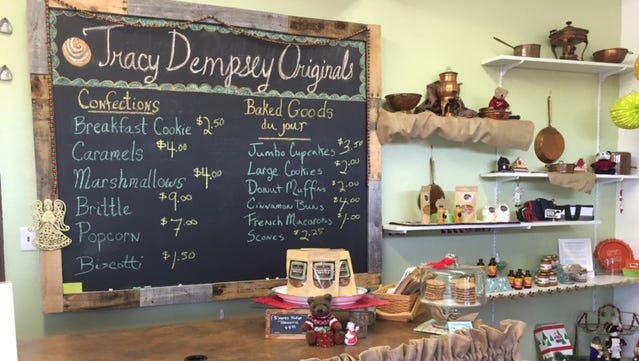 Tracy Dempsey Originals
Confections
Breakfast Cookie $2.50
Caramels $4.00
Marshmallows $4.00
Brittle $9.00
Popcorn $7.00
Biscotti $1.50
Baked Goods
du jour
Jumbo Cupcakes $3.50
Large Cookies $2.00
Donut Muffins $2.00
Cinnamon Buns $4.00
French Macarons $1.00
Scones $2.25
S'mores Fudge